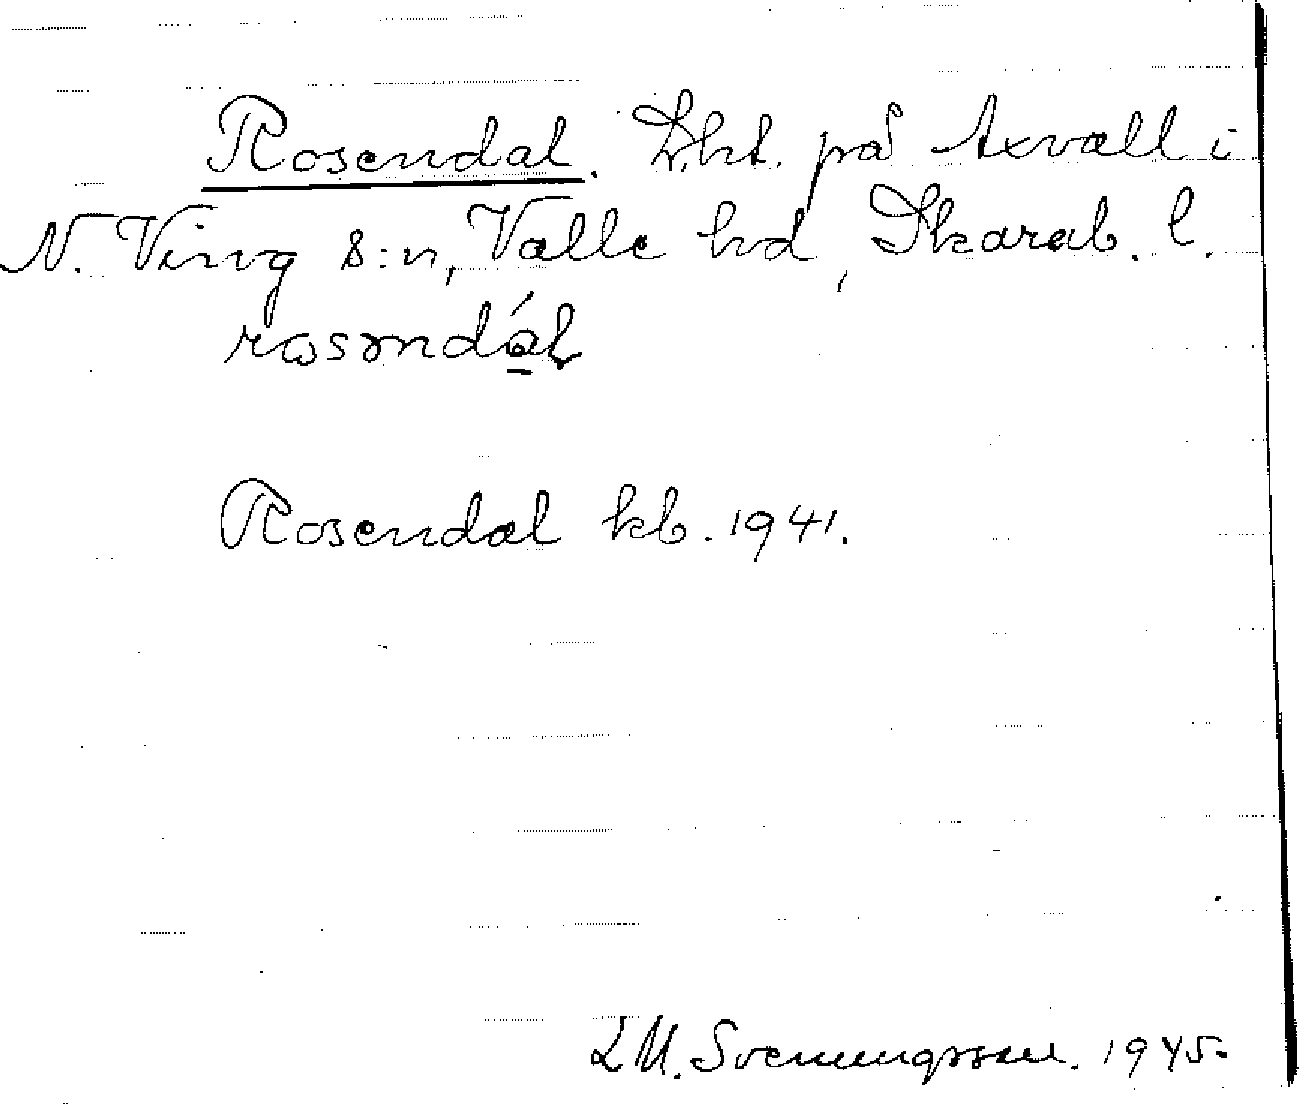 Rosendal. Lht. på Axvall i
N. Ving s:n, Valle hd, Skarab. l.
rosəndál
Rosendal kb. 1941.
L M. Svenungsson. 1945.